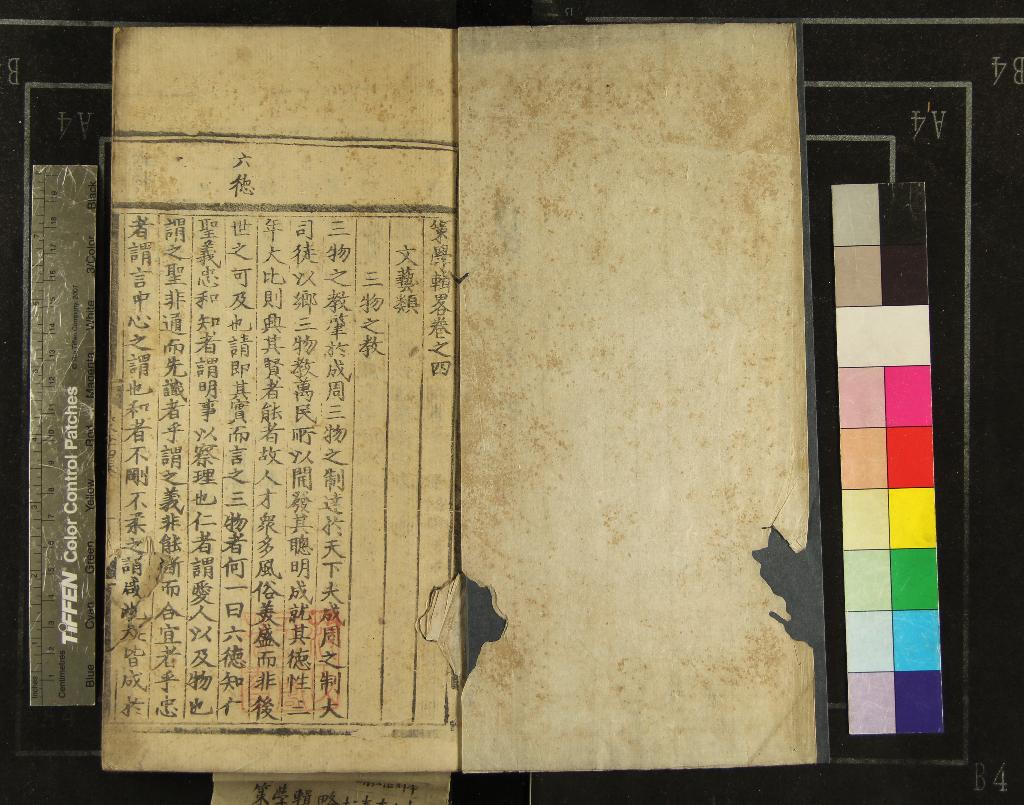 策學輯畧卷之四
文藝類
三物之教
三物之教肇於成周三物之制達於天下夫成周之制大
司徒以鄉三物教萬民所以開發其聰明成就其德性三
年大比則興其賢者能者故人才衆多風俗美盛而非後
世之可及也請即其實而言之三物者何一曰六德知仁
聖義忠和知者謂明事以察理也仁者謂愛人以及物也
謂之聖非通而先識者乎謂之義非能斷而合宜者乎忠
者謂言中心之謂也和者不剛不柔之謂
皆成於
六德
策學輯略
TIFFEN Color Control Patches
Blue Cyan Green Yellow Red Magenta White 3/Color Black
Inches
Centimetres
A4
B4
A4
B4
B4